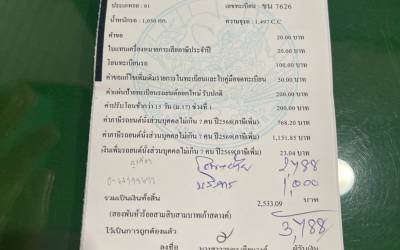 ประเภทรถ : 01 เลขทะเบียน : ขน 7626
น้ำหนักรถ : 1,050 กก. ความจุรถ : 1,497 C.C
ค่าขอ 20.00 บาท
ใบแทนเครื่องหมายการเสียภาษีประจำปี 20.00 บาท
โอนทะเบียนรถ 100.00 บาท
ค่าขอแก้ไขเพิ่มเติมรายการในทะเบียนและใบคู่มือจดทะเบียน 50.00 บาท
ค่าแผ่นป้ายทะเบียนรถยนต์ออกใหม่ รับปกติ 200.00 บาท
ค่าปรับโอนช้ากว่า 15 วัน (ม.17) ช่วงที่ 1 200.00 บาท
ค่าภาษีรถยนต์นั่งส่วนบุคคลไม่เกิน 7 คน ปี2568(ภาษีเพิ่ม) 768.20 บาท
ค่าภาษีรถยนต์นั่งส่วนบุคคลไม่เกิน 7 คน ปี2569(ภาษีเพิ่ม) 1,151.85 บาท
เงินเพิ่มรถยนต์นั่งส่วนบุคคลไม่เกิน 7 คน ปี2569(ภาษีเพิ่ม) 23.04 บาท
2,788
บริการ 1,000
รวมเป็นเงินทั้งสิ้น 2,533.09 บาท
(สองพันห้าร้อยสามสิบสามบาทเก้าสตางค์) 3,788
ไว้เป็นการถูกต้องแล้ว
ลงชื่อ ผู้รับเงิน